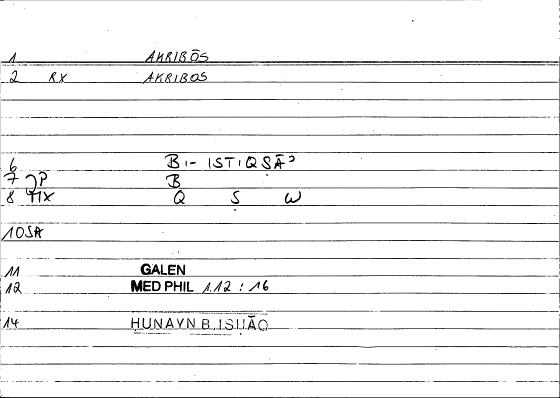 1 AKRIBŌS
2 RX AKRIBOS
6 B I- ISTIQṢĀʾ
7 P B
8 MX Q Ṣ W
10 SA
11 GALEN
12 MED PHIL 1.12 : 16
14 HUNAYN B. ISḤĀQ